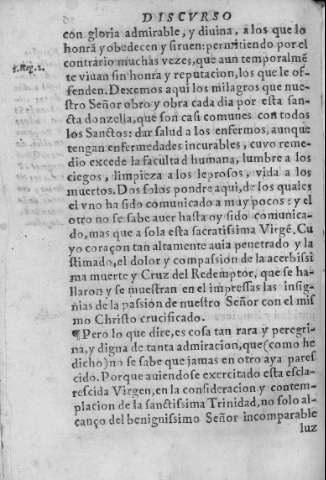 DISCVRSO
con gloria admirable, y diuina, a los que lo
honrā y obedecen y siruen: permitiendo por el
1. Reg. 2.
contrario muchas vezes, que aun temporalmē
te viuan sin honra y reputacion, los que le of-
fenden. Dexemos aqui los milagros que nue-
stro Señor obro y obra cada dia por esta san-
cta donzella, que son casi comunes con todos
los Sanctos: dar salud a los enfermos, aunque
tengan enfermedades incurables, cuyo reme-
dio excede la facultad humana, lumbre a los
ciegos, limpieza a los leprosos, vida a los
muertos. Dos solos pondre aqui, de los quales
el vno ha sido comunicado a muy pocos: y el
otro no se sabe auer hasta oy sido comunica-
do, mas que a sola esta sacratissima Virgē. Cu
yo coraçon tan altamente auia penetrado y la
stimado, el dolor y compassion de la acerbissi
ma muerte y Cruz del Redemptor, que se ha-
llaron y se muestran en el impressas las insig-
nias de la passion de nuestro Señor con el mis
mo Christo crucificado.
¶Pero lo que dire, es cosa tan rara y peregri-
na, y digna de tanta admiracion, que (como he
dicho) no se sabe que jamas en otro aya pares
cido. Porque auiendose exercitado esta escla-
rescida Virgen, en la consideracion y contem-
placion de la sanctissima Trinidad, no solo al-
canço del benignissimo Señor incomparable
luz